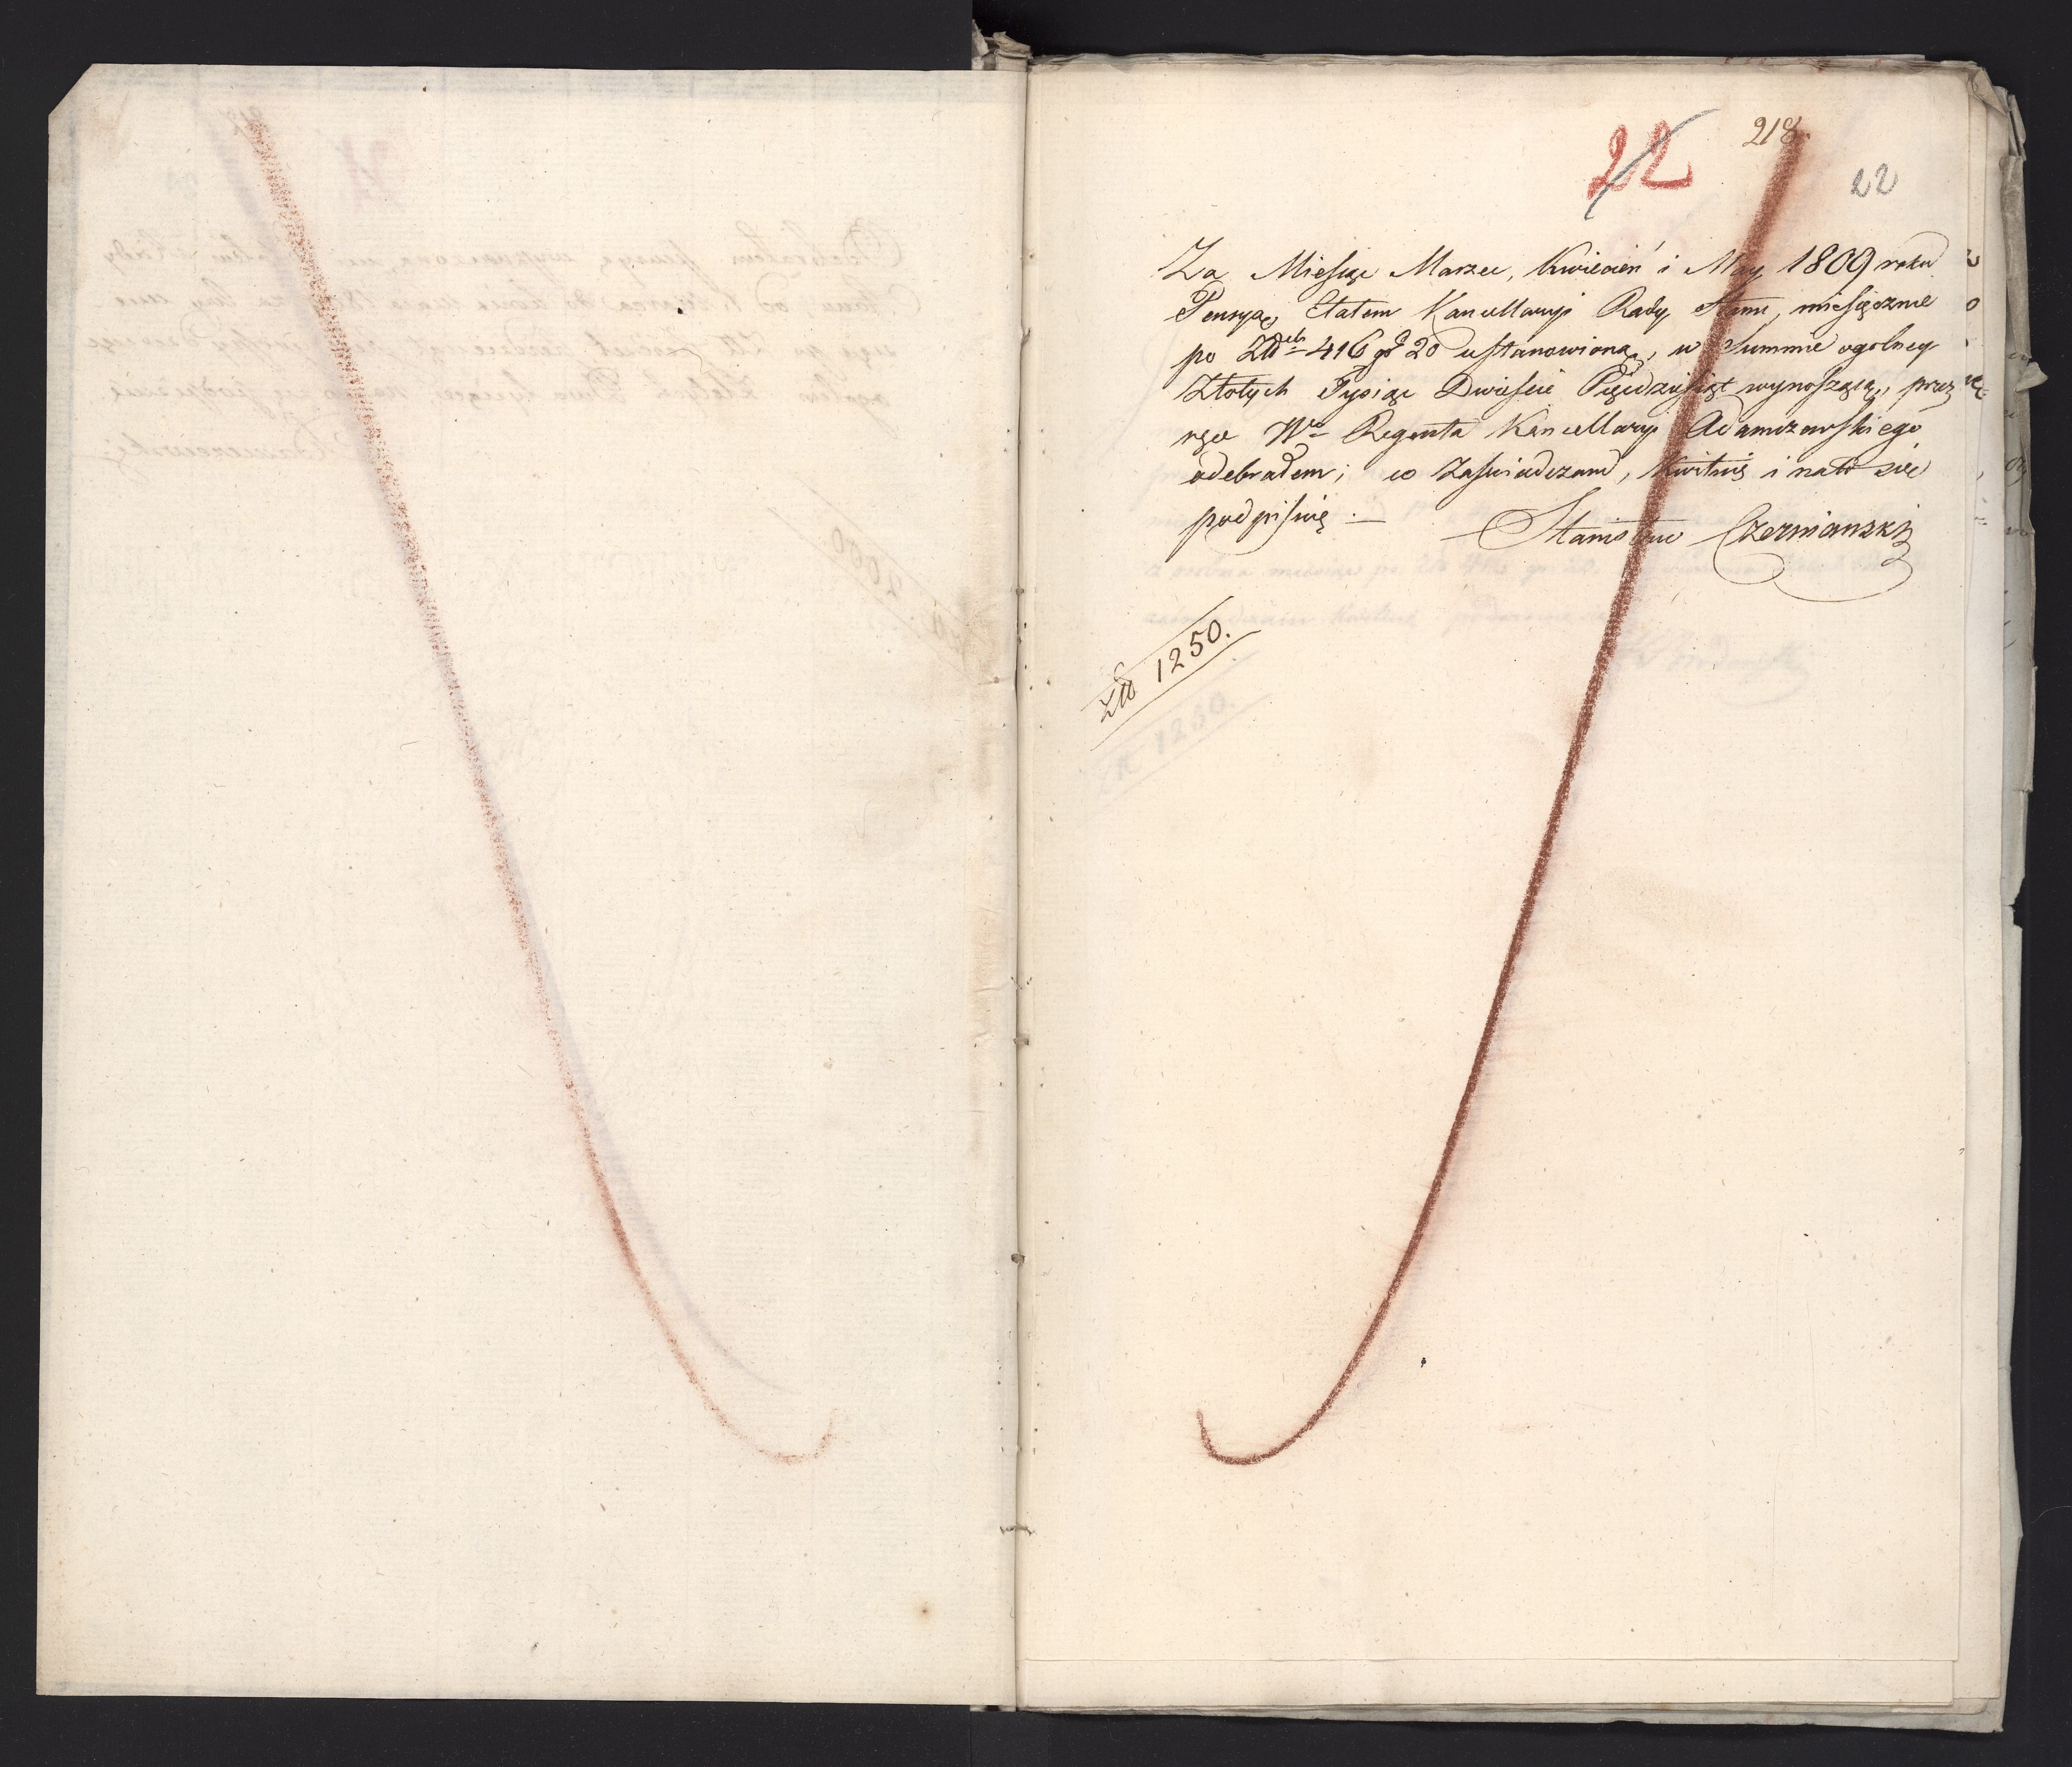 22 218.
22
Za Miesiąc Marzec, Kwiecień i May 1809 roku
Pensyą, Etatem Kancellaryi Rady Stanu, miesięcznie
po Złłch 416 gr 20 ustanowioną, w Summie ogolney
Złotych Tysiąc Dwieście Pięćdziesiąt wynoszącą, przez
ręce Wo Regenta Kancellaryi Adamczewskiego
odebrałem; co Zaświadczam, Kwituię i na to się
podpisuię.— Stanisław Czermanski
Złł 1250.